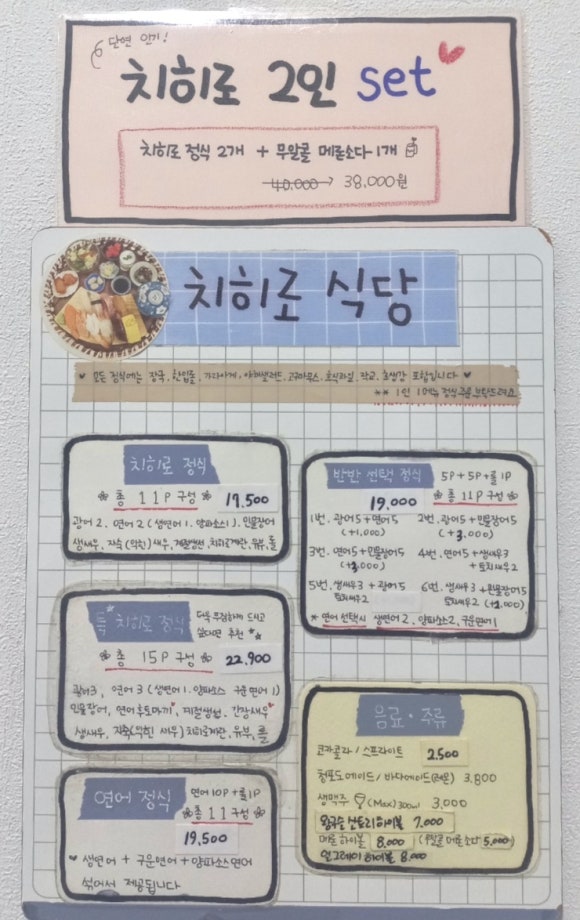 단연 인기!
치히로 2인 set
치히로 정식 2개 + 무알콜 메론소다 1개
40,000 → 38,000원
치히로 식당
모든 정식에는 장국, 한입롤, 가라아게, 야채샐러드, 고구마무스, 후식과일, 락교, 초생강 포함입니다
** 1인 1메뉴 정식 주문 부탁드려요
치히로 정식
총 11P 구성 17,500
광어2, 연어2 (생연어1, 양파소스1), 민물장어
생새우, 자숙(익힌)새우, 계절생선, 치히로계란, 유부, 롤
특 치히로 정식
더욱 푸짐하게 드시고
싶다면 추천
총 15P 구성 22,900
광어3, 연어3 (생연어1, 양파소스 구운연어1)
민물장어, 연어후토마끼, 제철생선, 간장새우
생새우, 자숙(익힌 새우) 치히로계란, 유부, 롤
연어 정식
연어10P+롤1P
총 11 구성
19,500
생연어 + 구운연어 + 양파소스연어
섞어서 제공됩니다
반반 선택 정식
5P+5P+롤1P
19,000 총 11P 구성
1번. 광어5+연어5 (+1,000)
2번. 광어5+민물장어5 (+3,000)
3번. 연어5+민물장어5 (+3,000)
4번. 연어5+생새우3 +토치새우2
5번. 생새우3 + 광어5 토치새우2
6번. 생새우3 +민물장어5 토치새우2 (+2,000)
* 연어 선택시 생연어2, 양파소스2, 구운연어1
음료·주류
코카콜라 / 스프라이트 2,500
청포도에이드 / 바다에이드(레몬) 3,800
생맥주 (Max) 300ml 3,000
왕구슬 산토리하이볼 7,000
메론 하이볼 8,000 (무알콜 메론소다 5,000)
얼그레이 하이볼 8,000